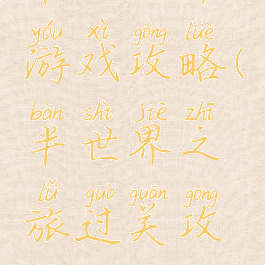 yóu xì gōng lüè
游戏攻略(
bàn shì jiè zhī
半世界之
lǚ guò guān gōng
旅过关攻